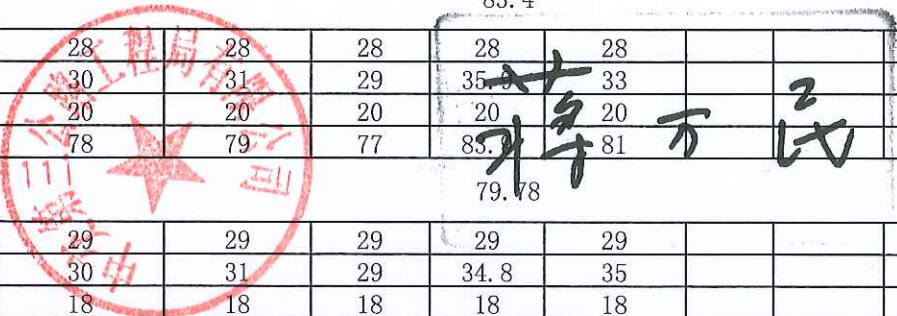 28 28 28 28 28
30 31 29 35.9 33
20 20 20 20 20
78 79 77 83.9 81
79.78
29 29 29 29 29
30 31 29 34.8 35
18 18 18 18 18
中交第三公路工程局有限公司
蒋万民